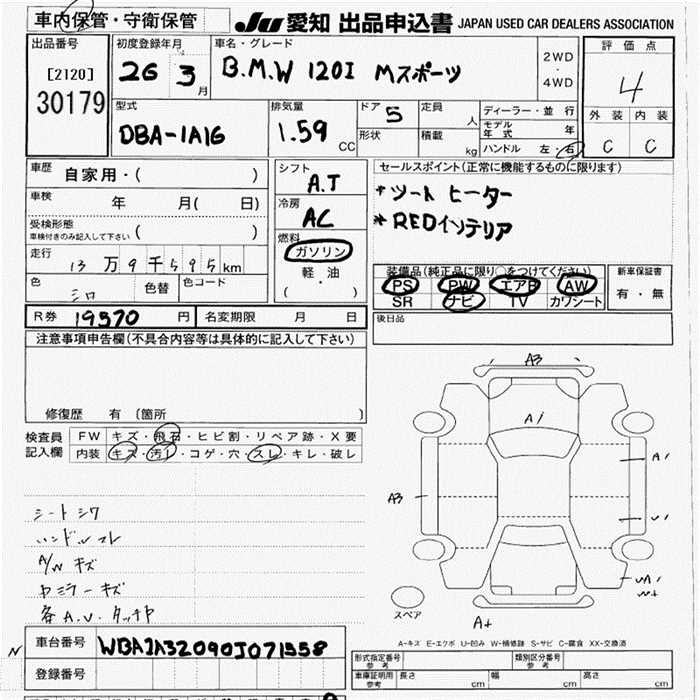 車内保管・守衛保管
JU 愛知 出品申込書 JAPAN USED CAR DEALERS ASSOCIATION
出品番号
[2120]
30179
初度登録年月
26 3月
車名・グレード
B.M.W 120I Mスポーツ
2WD
・
4WD
評価点
4
外装 内装
C C
型式
DBA-1A16
排気量
1.59 CC
ドア 5
形状
定員 人
積載 kg
ディーラー・並行
モデル年式 年
ハンドル 左・右
車歴 自家用・( )
車検 年 月( 日)
受検形態
車検付きのみ記入して下さい ( )
走行 13万9千595km
色 シロ 色替 色コード
シフト
A.T
冷房
AC
燃料
ガソリン
軽・油
( )
セールスポイント(正常に機能するものに限ります)
*シート ヒーター
*REDインテリア
装備品(純正品に限り○をつけてください)
PS PW エアB AW
SR ナビ TV カワシート
新車保証書
有・無
後日品
R券 19370 円 名変期限 月 日
注意事項申告欄(不具合内容等は具体的に記入して下さい)
修復歴 有 〔箇所 〕
検査員記入欄
FW キズ・飛石・ヒビ割・リペア跡・X要
内装 キズ・汚レ・コゲ・穴・スレ・キレ・破レ
シート シワ
ハンドル スレ
A/W キズ
ドミラー キズ
各A.U.タッチヤ
A3
A1
A1
A3
U1
UA1
W+
A+
スペア
A-キズ E-エクボ U-凹み W-補修跡 S-サビ C-腐食 XX-交換済
N
車台番号 WBA1A32090J071558
登録番号
形式指定番号 参考
類別区分番号 参考
車庫証明用 参考 長さ cm 幅 cm 高さ cm